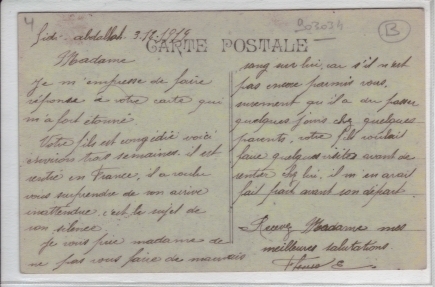 4
Sidi-abdallah 3.12.1919
903034
B
CARTE POSTALE
Madame
Je m'empresse de faire
réponse à votre carte qui
m'a fort étonné.
Votre fils est congédié voici
environ trois semaines. il est
rentré en France, il a voulu
vous surprendre de son arrivée
inattendue. c'est le sujet de
son silence.
Je vous prie madame de
ne pas vous faire de mauvais
sang sur lui, car s'il n'est
pas encore parmis vous,
surement qu'il a du passer
quelques jours chez quelques
parents, votre fils voulait
faire quelques visites avant de
rentrer chez lui, il m'en avait
fait part avant son départ.
Recevez Madame mes
meilleures salutations.